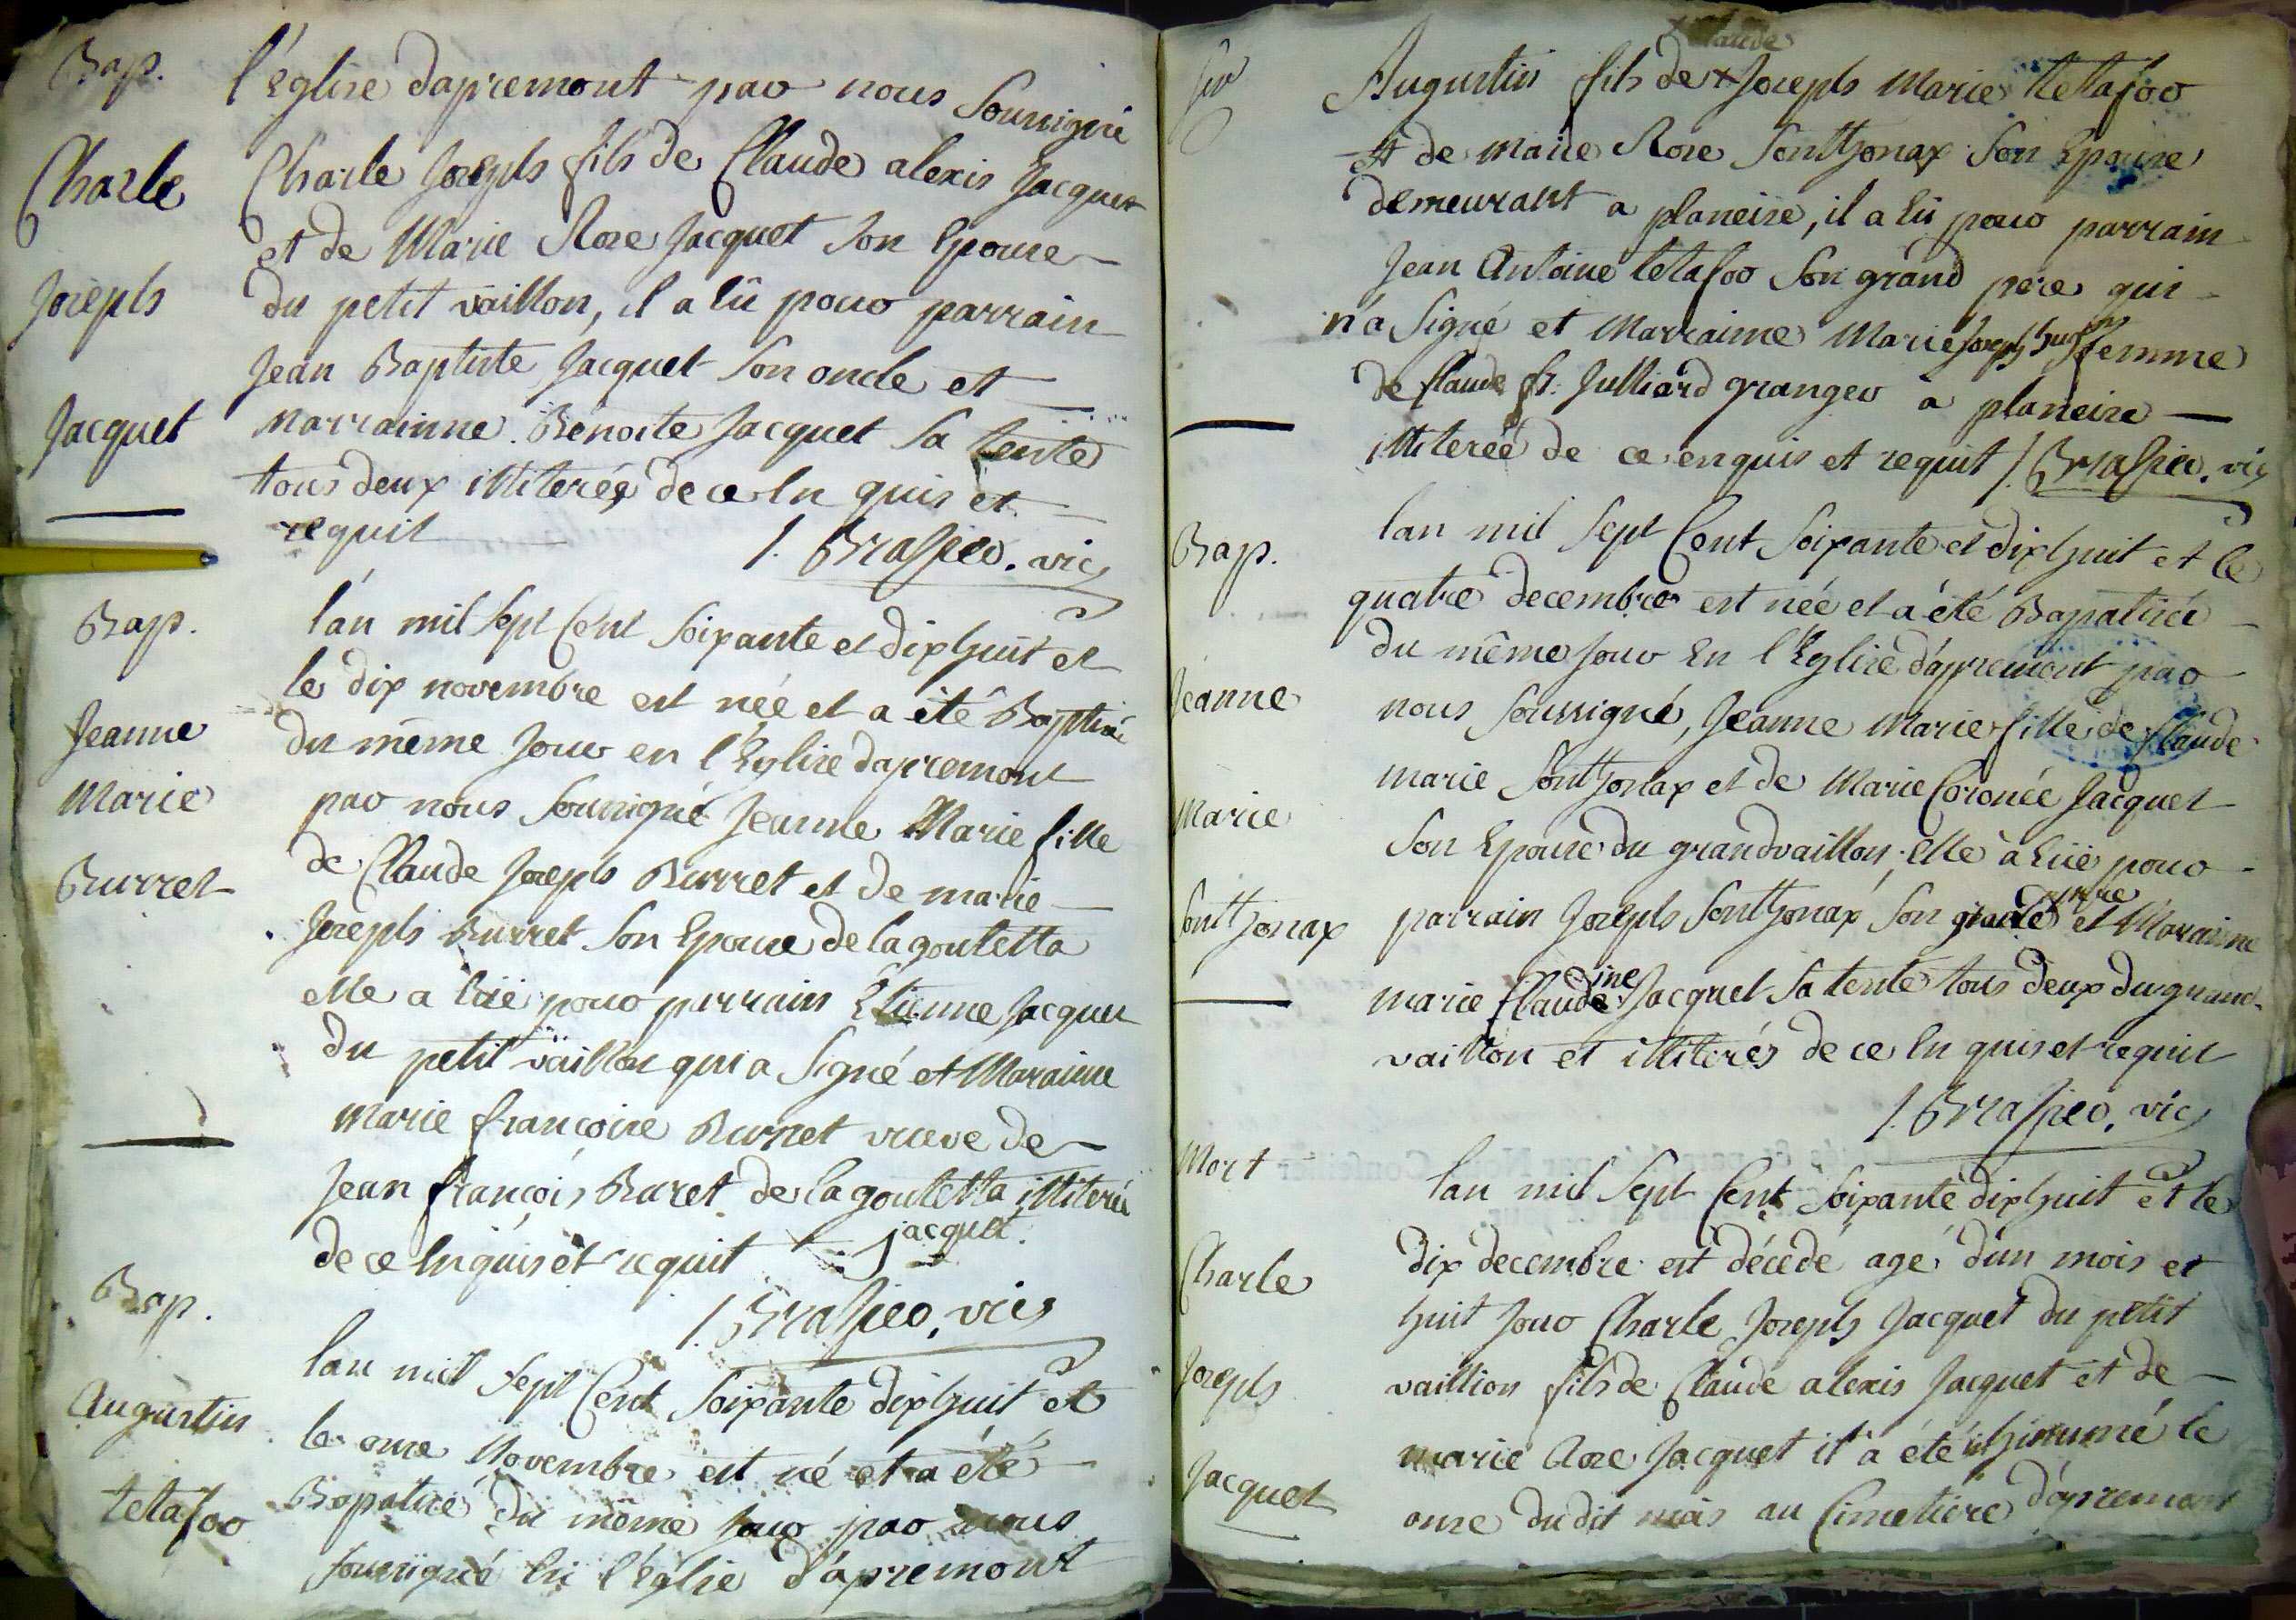 Bap.
Charle
Joseph
Jacquet
l'Eglise dapremont par nous Soussigné
Charle Joseph fils de Claude alexis Jacquet
et de Marie Rose Jacquet Son Epouse
du petit vaillon, il a Eü pour parrain
Jean Baptiste Jacquet Son oncle et
marrainne Benoite Jacquet Sa tente
tous deux illiterés de ce En quis et
requit
J. Brasier. vic
Bap.
Jeanne
Marie
Burret
l'an mil Sept Cent Soixante et dixhuit et
le dix novembre est née et a été Baptisé
du même Jour en l'Eglise dapremont
par nous Soussigné Jeanne Marie fille
de Claude Joseph Burret et de marie
Joseph Burret Son Epouse de la goutetta
elle a Eüe pour parrain Etienne Jacquet
du petit vaillon qui a Signé et Maraine
Marie françoise Burret vueve de
Jean françois Buret de la goutetta illiterée
de ce Enquis et requit
jacquet
J. Brasier. vic
Bap.
Augustin
tetafor
lan mil Sept Cent Soixante dixhuit et
le onse Novembre est né et a été
Bapatisé du même Jour par nous
soussigné En l'église d'apremont
Claude
Augustin fils de x Joseph Marie tetafor
et de marie Rose Sonthonax Son Epouse
demeurant a planeise, il a Eü pour parrain
Jean Antoine tetafor Son grand pere qui
n'a Signé et Marraime Marie Joseph femme
de Claude fr. Julliard granger à planeise
illiterée de ce enquis et requit J. Brasier. vic
Bap.
Jeanne
Marie
Sonthonax
lan mil Sept Cent Soixante et dixhuit et le
quatre decembre est née et a été Bapatisée
du même Jour En l'Eglise d'apremont par
nous Soussigné, Jeanne Marie fille de Claude
marie Sonthonax et de Marie Coronée Jacquet
Son Epouse du grandvaillon, Elle à Eüe pour
parrain Joseph Sonthonax Son grand pere et Marainne
marie Claudine Jacquet Sa tente tous deux du grand
vaillon et illiterés de ce En quis et requit
J. Brasier. vic
Mort
Charle
Joseph
Jacquet
lan mil Sept Cent Soixante dixhuit et le
dix decembre est décedé agé d'un mois et
huit Jour Charle Joseph Jacquet du petit
vaillion fils de Claude alexis Jacquet et de
marie Rose Jacquet il a été inhinumé le
onse du dit mois au Cimetiere d'apremont